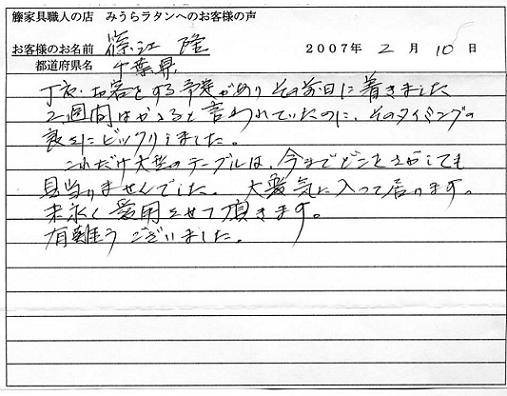 籐家具職人の店 みうらラタンへのお客様の声
お客様のお名前 篠江 隆 2007年 2月 10日
都道府県名 千葉県
丁度、お客をする予定があり その前日に着きました
2週間はかかると言われていたのに、そのタイミングの
良さにビックリしました。
これだけ大型のテーブルは、今までどこをさがしても
見当りませんでした。大変気に入って居ります。
末永く愛用させて頂きます。
有難うございました。